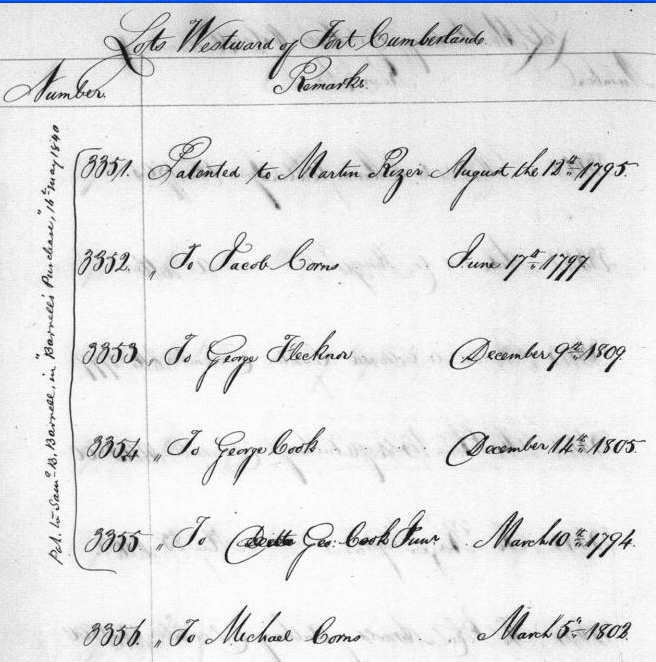 Lots Westward of Fort Cumberland.
Number. Remarks.
Pat. to Saml. B. Barrell, in "Barrell's Purchase," 16th May 1840
3351. Patented to Martin Rizer August the 12th 1795.
3352. " To Jacob Corns June 17th 1797.
3353 " To George Flecknor December 9th 1809.
3354 " To George Cook December 14th 1805.
3355 " To Ditto Geo: Cook Junr March 10th 1794.
3356. " To Michael Corns March 5th 1802.